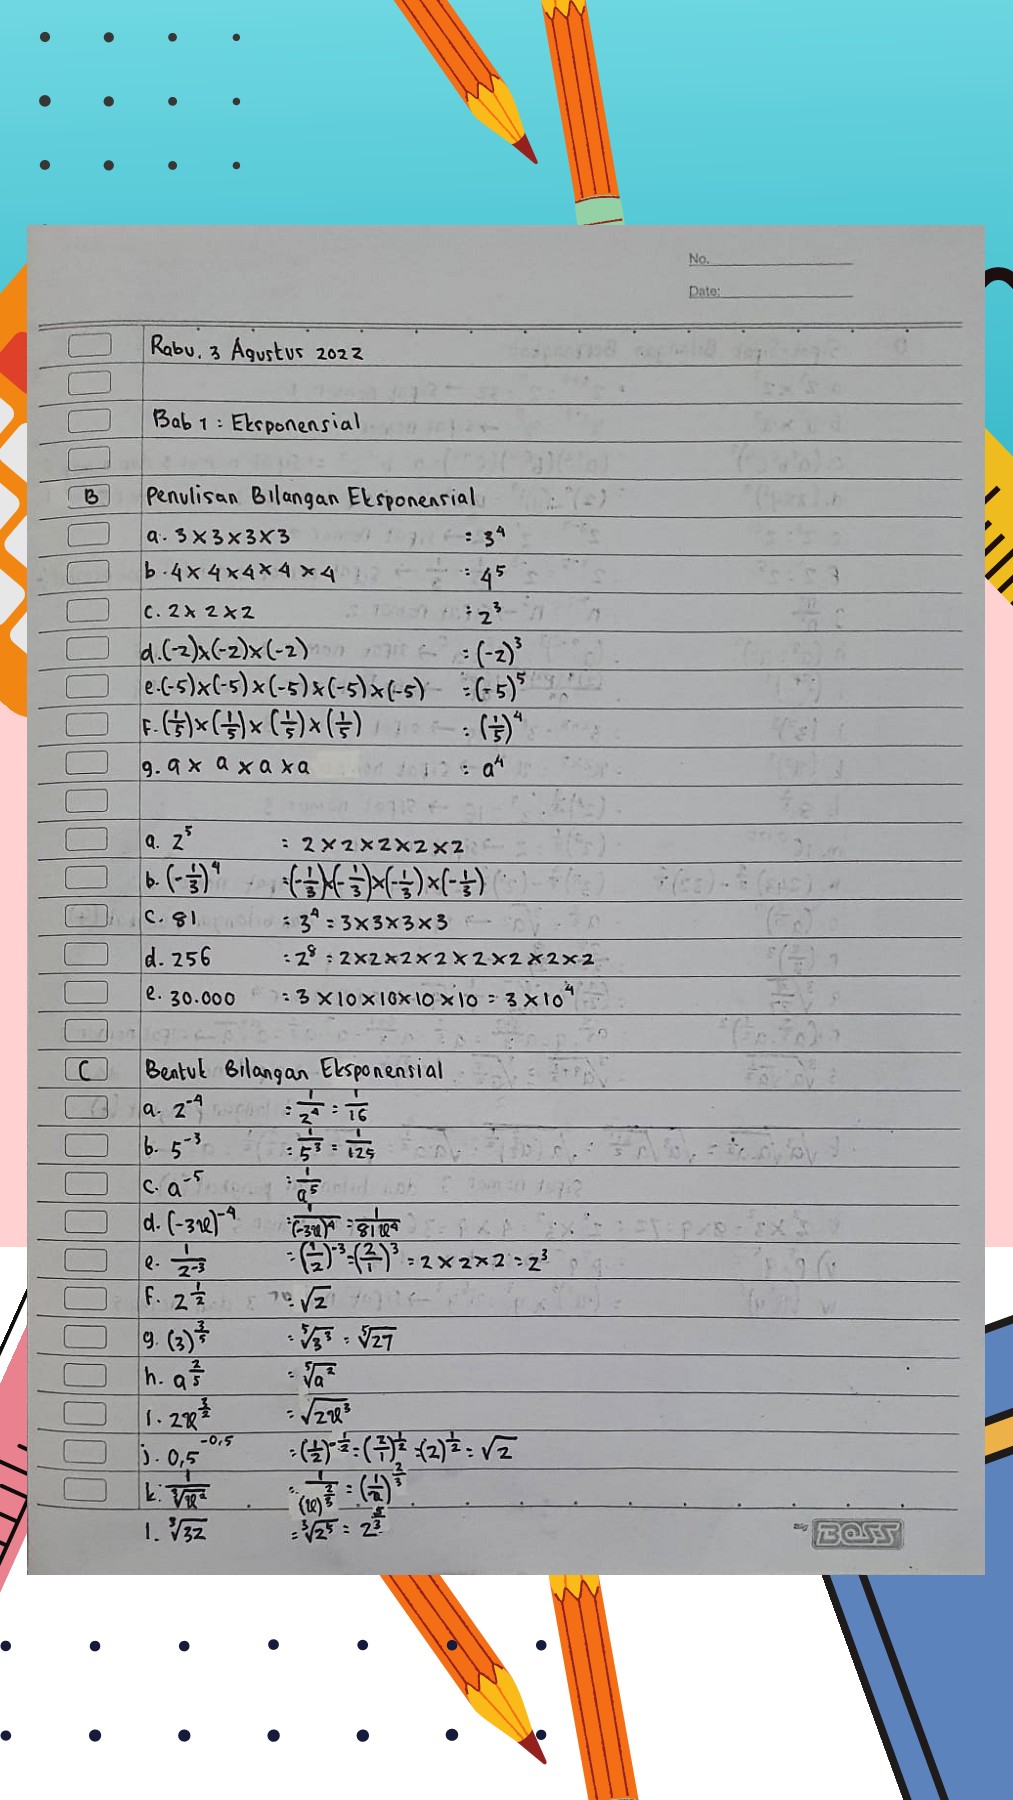 No.
Date:
Rabu, 3 Agustus 2022
Bab 1 : Eksponensial
B Penulisan Bilangan Eksponensial
a. 3 × 3 × 3 × 3 = 3⁴
b. 4 × 4 × 4 × 4 × 4 = 4⁵
c. 2 × 2 × 2 = 2³
d. (-2) × (-2) × (-2) = (-2)³
e. (-5) × (-5) × (-5) × (-5) × (-5) = (-5)⁵
f. (1/5) × (1/5) × (1/5) × (1/5) = (1/5)⁴
g. a × a × a × a = a⁴
a. 2⁵ = 2 × 2 × 2 × 2 × 2
b. (-1/3)⁴ = (-1/3) × (-1/3) × (-1/3) × (-1/3)
c. 81 = 3⁴ = 3 × 3 × 3 × 3
d. 256 = 2⁸ = 2 × 2 × 2 × 2 × 2 × 2 × 2 × 2
e. 30.000 = 3 × 10 × 10 × 10 × 10 = 3 × 10⁴
C Bentuk Bilangan Eksponensial
a. 2⁻⁴ = 1/2⁴ = 1/16
b. 5⁻³ = 1/5³ = 1/125
c. a⁻⁵ = 1/a⁵
d. (-3x)⁻⁴ = 1/(-3x)⁴ = 1/81x⁴
e. 1/2⁻³ = (1/2)⁻³ = (2/1)³ = 2 × 2 × 2 = 2³
f. 2^(1/2) = √2
g. (3)^(3/5) = ⁵√3³ = ⁵√27
h. a^(2/5) = ⁵√a²
i. 2x^(3/2) = √2x³
j. 0,5^(-0,5) = (1/2)^(-1/2) = (2/1)^(1/2) = (2)^(1/2) = √2
k. 1/³√x² = 1/(x)^(2/3) = (1/x)^(2/3)
l. ³√32 = ³√2⁵ = 2^(5/3)
Big BOSS